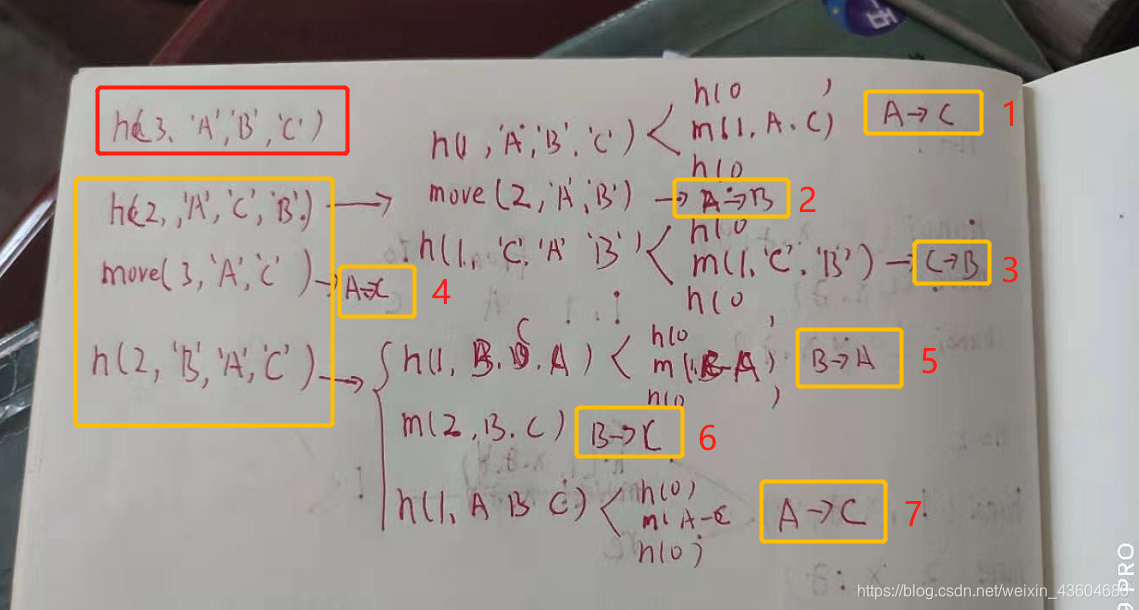 h(3、'A','B','C')
h(1,'A','B','C')
h(0 )
m(1,A.C)
h(0
A→C
1
h(2,,'A','C','B')→
move(2,'A,'B')→
A→B
2
move(3,'A','C')→
A→C
4
h(1,'C,'A' 'B')
h(0
m(1,'C','B')→
h(0
C→B
3
h(2,'B','A','C')→
h(1,B. C.A)
h(0 )
m(1.B-A)
h(0 )
B→A
5
m(2,B.C)
B→C
6
h(1,A B C)
h(0)
m( A-C
h(0)
A→C
7
9 PRO
https://blog.csdn.net/weixin_43604680